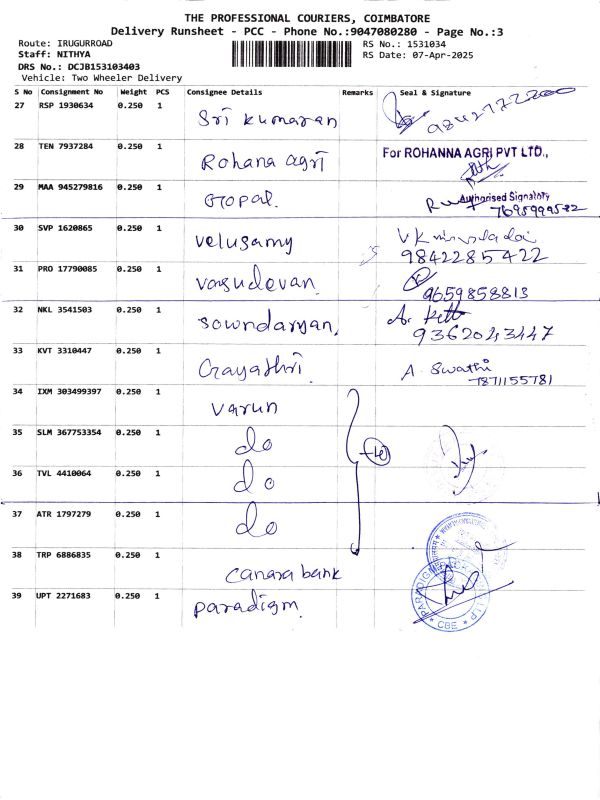 THE PROFESSIONAL COURIERS, COIMBATORE
Delivery Runsheet - PCC - Phone No.:9047080280 - Page No.:3
Route: IRUGURROAD RS No.: 1531034
Staff: NITHYA RS Date: 07-Apr-2025
DRS No.: DCJB153103403
Vehicle: Two Wheeler Delivery
S No Consignment No Weight PCS Consignee Details Remarks Seal & Signature
27 RSP 1930634 0.250 1 Sri Kumaran 9842772200
28 TEN 7937284 0.250 1 Rohana agri For ROHANNA AGRI PVT LTD.,
29 MAA 945279816 0.250 1 Gopal. Authorised Signatory
7695999582
30 SVP 1620865 0.250 1 velusamy
9842285422
31 PRO 17790085 0.250 1 vasudevan 9659858813
32 NKL 3541503 0.250 1 sowndaryan, 9362043447
33 KVT 3310447 0.250 1 Gayathri A. Swathi
7871155781
34 IXM 303499397 0.250 1 varun
35 SLM 367753354 0.250 1 do
36 TVL 4410064 0.250 1 do
37 ATR 1797279 0.250 1 do
38 TRP 6886835 0.250 1 canara bank
39 UPT 2271683 0.250 1 paradigm
CBE